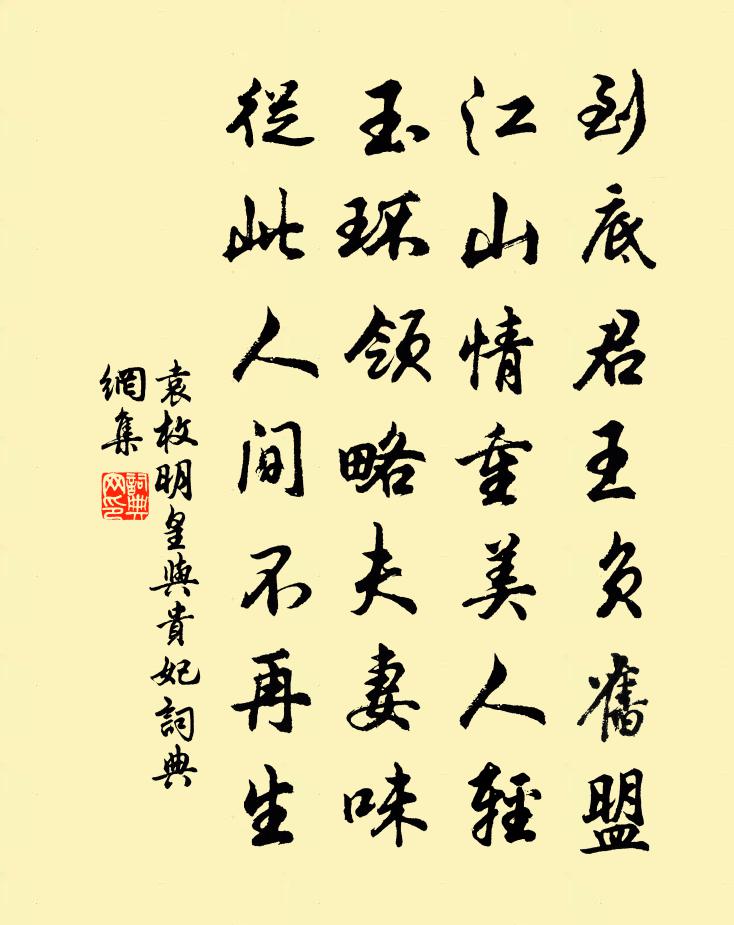 到底君王負舊盟
江山情重美人輕
玉環領略夫妻味
從此人間不再生
袁枚明皇與貴妃詞典
網集
詞典
网印